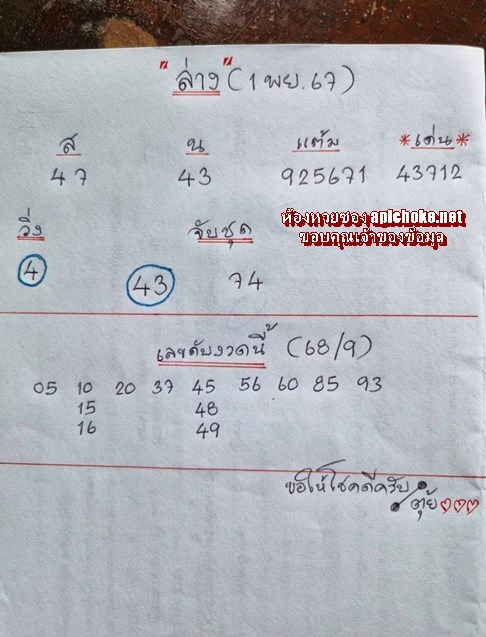 "ล่าง" (1 พย. 67)
ส น แต้ม *เด่น*
47 43 925671 43712
วิ่ง จับชุด
ห้องหวยซอง apichoke.net
ขอบคุณเจ้าของข้อมูล
4 43 74
เลขดับงวดนี้ (68/9)
05 10 20 37 45 56 60 85 93
15 48
16 49
ขอให้โชคดีครับ
ตุ้ย